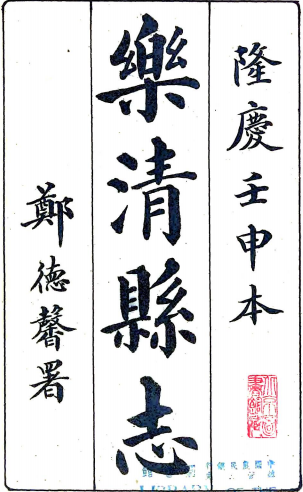 隆慶壬申本
樂清縣志
鄭德馨署
LIBRARY